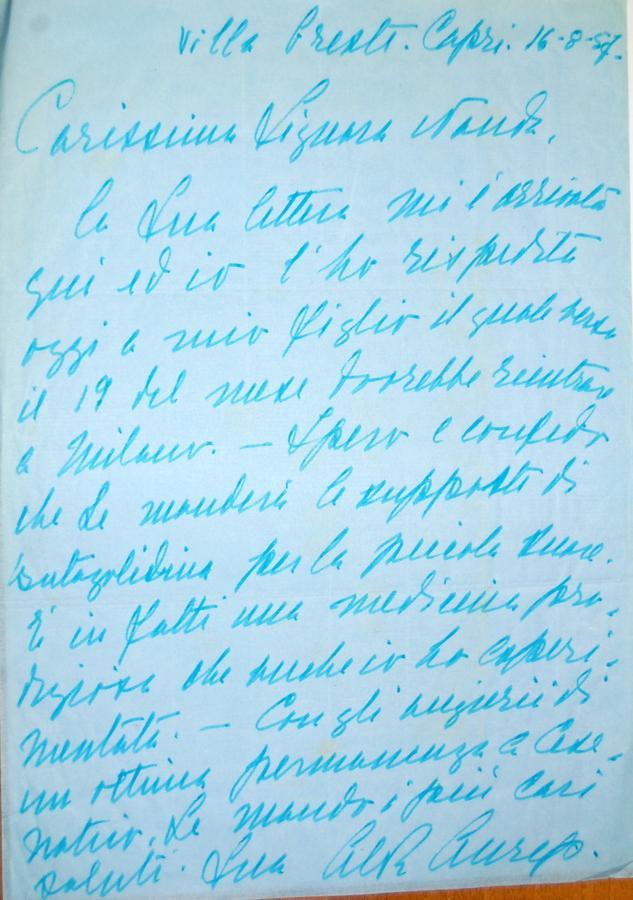 Villa Capri. 16-8-57.
Carissima Signora Nanda,
la Sua lettera mi è arrivata
qui ed io l'ho rispedita
oggi a mio figlio il quale verso
il 19 del mese dovrebbe rientrare
a Milano. — Spero e confido
che Le manderà le supposte di
per la piccola
E' in fatti una medicina pro-
digiosa che anche io ho esperi-
mentata. — Con gli auguri di
un ottima permanenza a Cese-
natico, Le mando i più cari
saluti. Sua